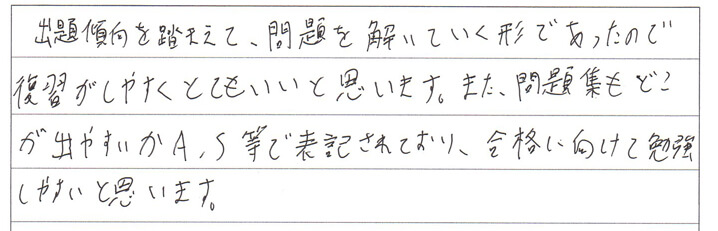 出題傾向を踏まえて、問題を解いていく形であったので
復習がしやすくとてもいいと思います。また、問題集もどこ
が出やすいかA、S等で表記されており、合格に向けて勉強
しやすいと思います。